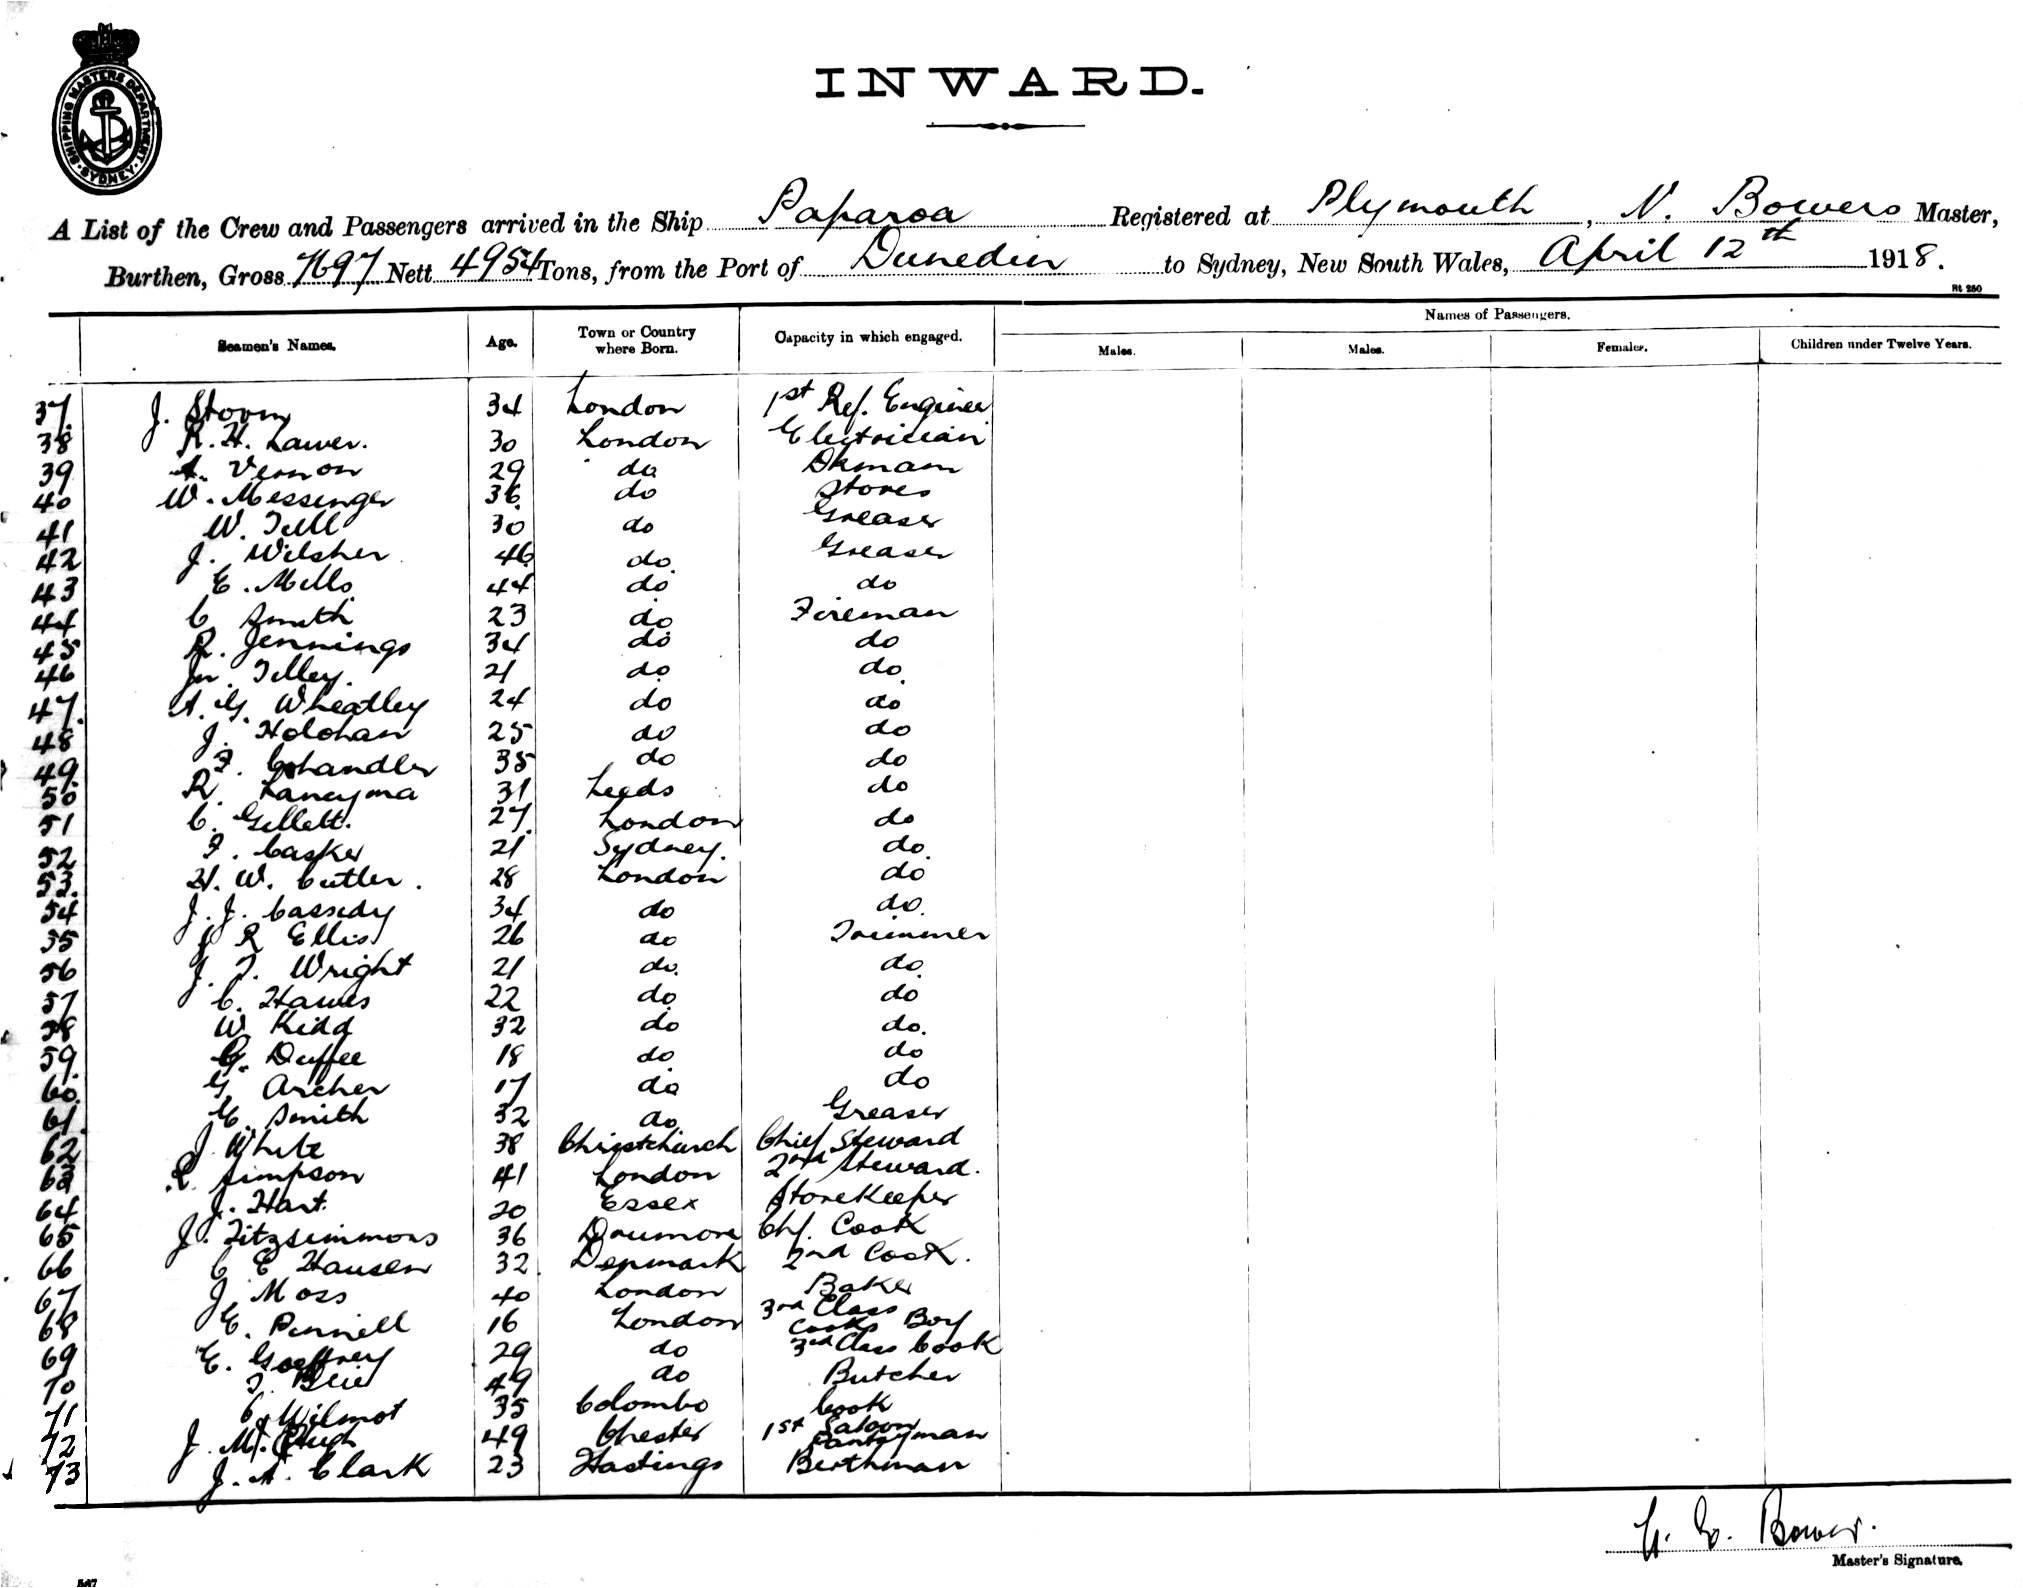 SHIPPING MASTERS DEPARTMENT · SYDNEY ·
INWARD.
A List of the Crew and Passengers arrived in the Ship Paparoa Registered at Plymouth, N. Bowers Master,
Burthen, Gross 7697 Nett 4954 Tons, from the Port of Dunedin to Sydney, New South Wales, April 12th 1918.
Rt 250
Seamen's Names. Age. Town or Country where Born. Capacity in which engaged. Names of Passengers.
Males. Males. Females. Children under Twelve Years.
37. J. Storm 34 London 1st Ref. Engineer
38 R. H. Lawer. 30 London Electrician
39 A. Vernon 29 do Dkmam
40 W. Messenger 36 do Stores
41 W. Tull 30 do Greaser
42 J. Wilsher 46 do Greaser
43 E. Mills 44 do do
44 C Smith 23 do Fireman
45 R. Jennings 34 do do
46 Jn. Tilley. 21 do do
47. A. G. Wheatley 24 do do
48 J. Holohan 25 do do
49 F. Chandler 35 do do
50 R. Lancyma 31 Leeds do
51 C. Gellett. 27 London do
52 F. Casker 21 Sydney. do
53. H. W. Cutler. 28 London do
54 J. J. Cassidy 34 do do
55 J R Ellis 26 do Trimmer
56 J. T. Wright 21 do do
57 C. Hawes 22 do do
58 W Kidd 32 do do.
59. G. Duffee 18 do do
60. G Archer 17 do do
61. E. Smith 32 do Greaser
62 J White 38 Christchurch Chief Steward
63 R. Simpson 41 London 2nd Steward.
64 J. Hart. 20 Essex StoreKeeper
65 J. Fitzsimmons 36 Drumore Chf. Cook
66 C E Hansen 32 Denmark 2nd Cook.
67 J. Moss 40 London Baker
68 E. Pennell 16 London 3rd Class Cooks Boy
69 E. Geoffrey 29 do 3rd Class Cook
70 49 do Butcher
71 C. Wilmot 35 Colombo Cook
72 J. 49 Chester 1st Saloon Pantryman
73 J. A. Clark 23 Hastings Berthman
Bower.
Master's Signature.
567